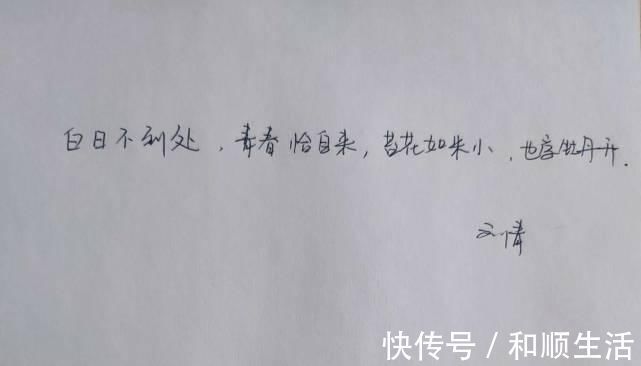 白日不到处，青春恰自来，苔花如米小，也学牡丹开.
文情
快传号 / 和顺生活